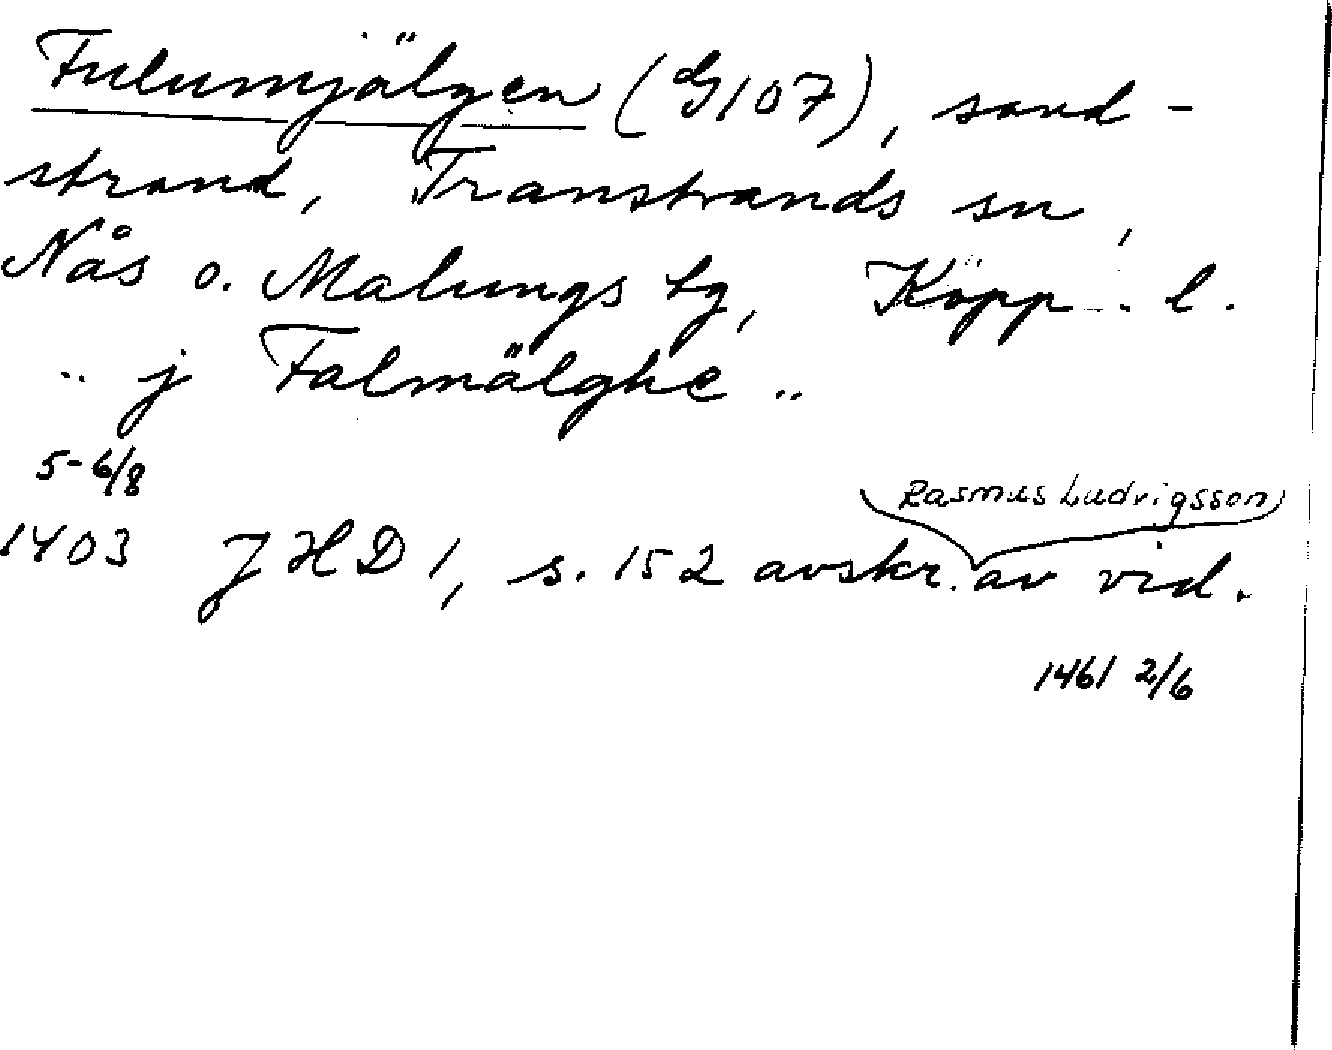 Fulumjälgen (G107), sand-
strand, Transtrands sn,
Nås o. Malungs tg, Kopp. l.
.. j Falmälghe ..
5-6/8
1403 JHD 1, s. 152 avskr. av vid.
Rasmus Ludvigsson
1461 2/6